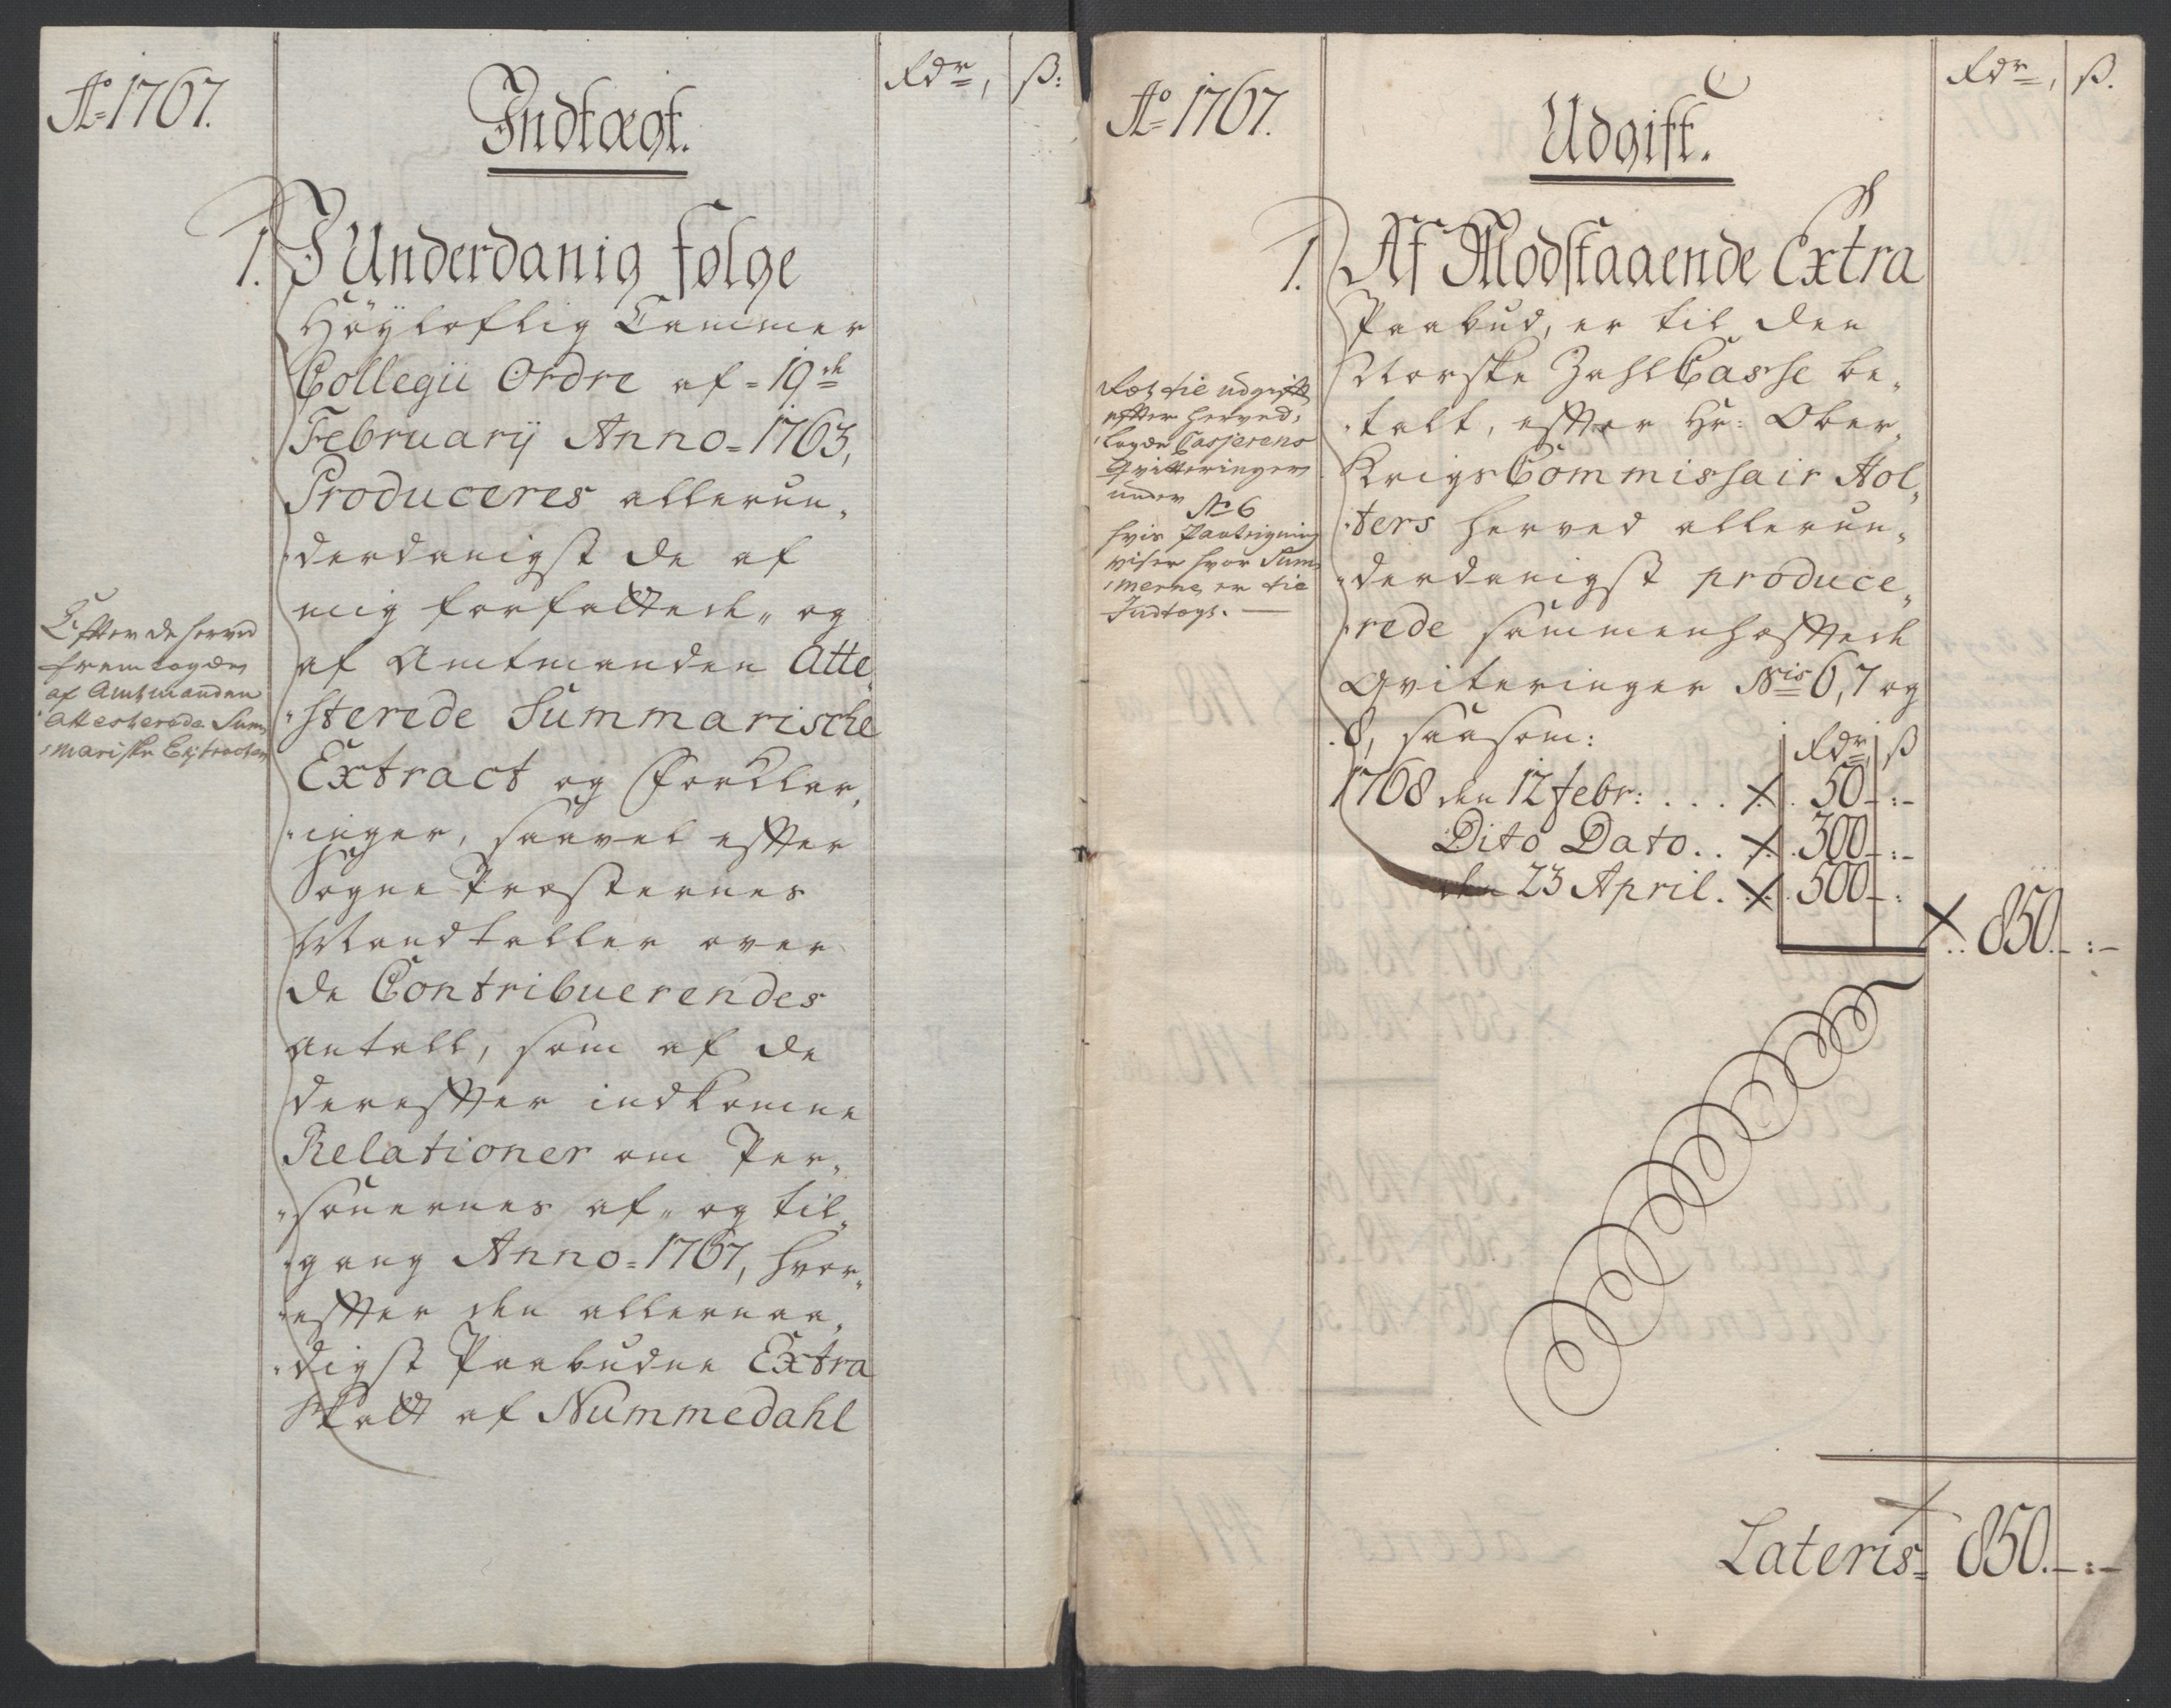 Ao 1767.
Indtægt.
Rdr, ß:
1. I Underdanig følge
Höÿloflig Cammer
Collegii Ordre af 19de
Februarij Anno 1763,
Produceres allerun„
„derdanigst de af
mig forfattede„ og
af Amtmanden Atte„
„sterede Summarische
Extract og Forklar„
„inger, saavel efter
Sogne Præsternes
Mandtaller over
de Contribuerendes
antall, som af de
derefter indkomne
Relationer om Per„
„sonernes af„ og til„
„gang Anno 1767, hvor„
„efter den allernaa„
„digst Paabudne Extra
Skatt af Nummedahl
Efter de herved
fremlagde
af Amtmanden
attesterede Sum„
„mariske Extracter
Ao 1767.
Udgift.
Rdr, ß.
1. Af Modstaaende Extra
Paabud, er til den
Norske ZahlCasse be„
„talt, efter Hr: Ober„
KrigsCommissair Hol„
„ters herved allerun„
„derdanigst produce„
„rede sammenheftede
Qviteringer Nris 6, 7 og
8, saasom:
Rdr ß
1768 den 12 febr: . . . 50 -:-
Dito Dato . . 300 -:-
den 23 April . . 500 -:
850. -:-
til udgift
efter herved„
„lagde Casserens
Qvitteringer
under No 6
hvis Paategning
viser hvor Sum„
„merne er til
Indtægt.
Lateris 850. -:-